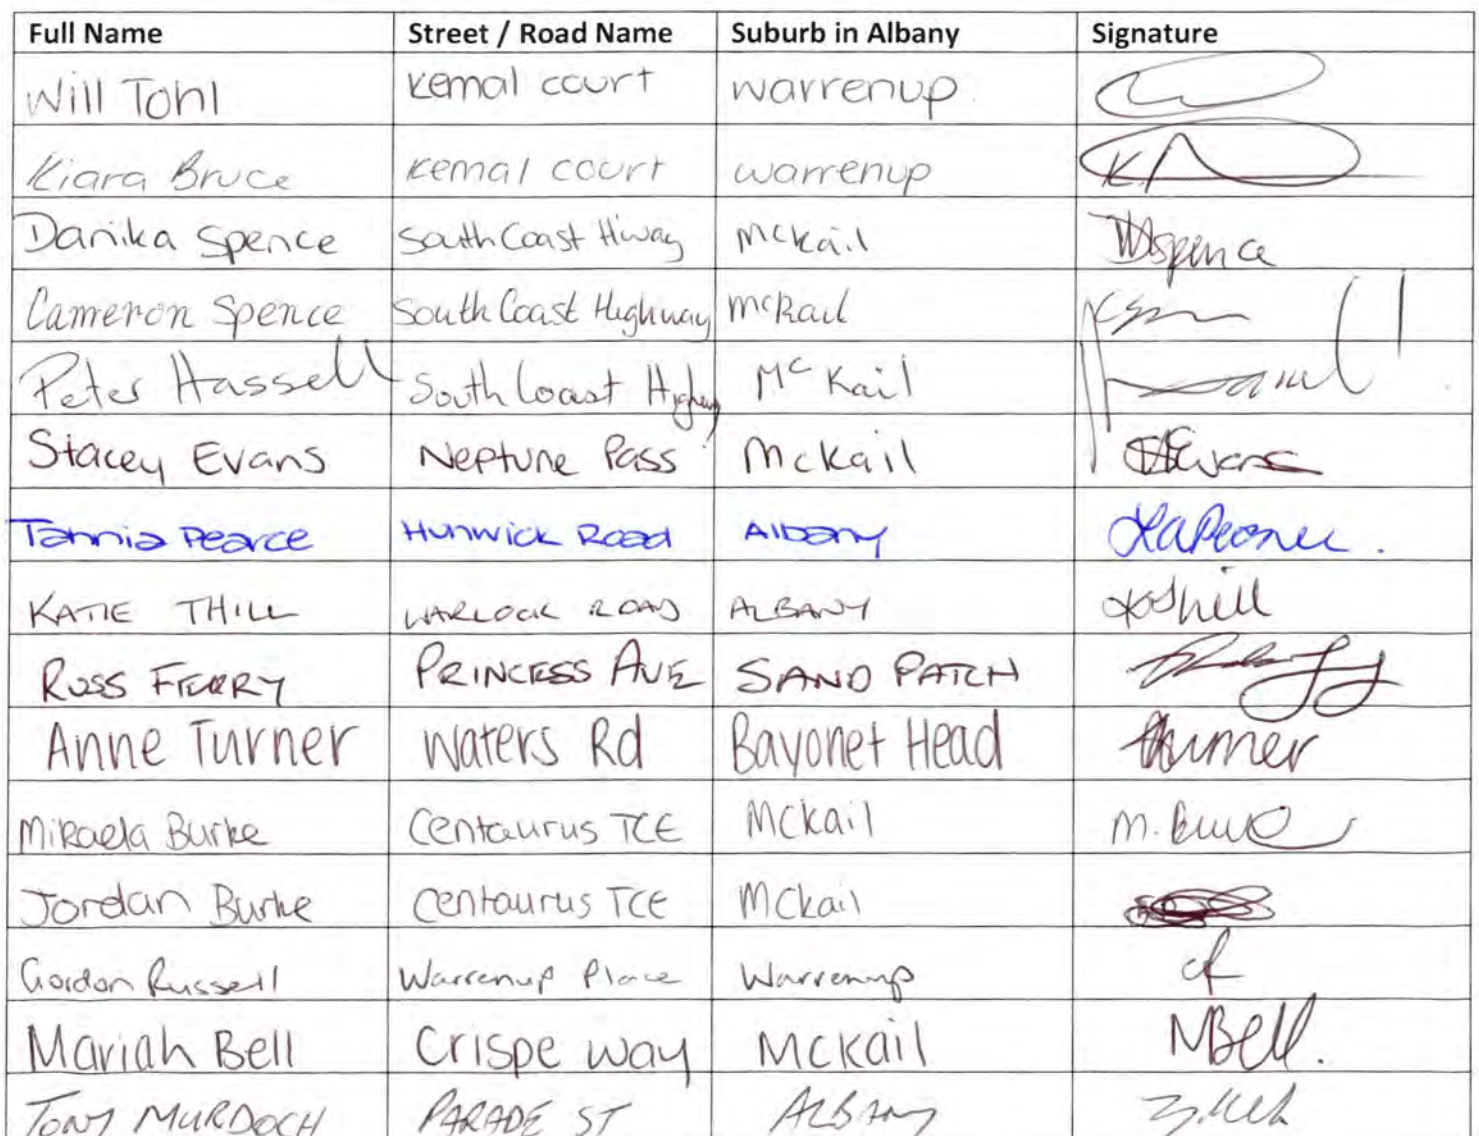 Full Name Street / Road Name Suburb in Albany Signature
Will Tohl Kemal court warrenup
Kiara Bruce Kemal court warrenup
Danika Spence South Coast Hway Mckail DSpence
Cameron Spence South Coast Highway McKail
Peter Hassell South Coast Highway Mc Kail
Stacey Evans Neptune Pass Mckail SEvans
Tannia Pearce Hunwick Road Albany
KATIE THILL WARLOCK ROAD ALBANY
ROSS FERRY PRINCESS AVE SAND PATCH
Anne Turner Waters Rd Bayonet Head
Mikaela Burke Centaurus TCE Mckail M. Burke
Jordan Burke Centaurus TCE Mckail
Gordon Russell Warrenup Place Warrenup
Mariah Bell Crispe way Mckail MBell.
TONY MURDOCH PARADE ST ALBANY